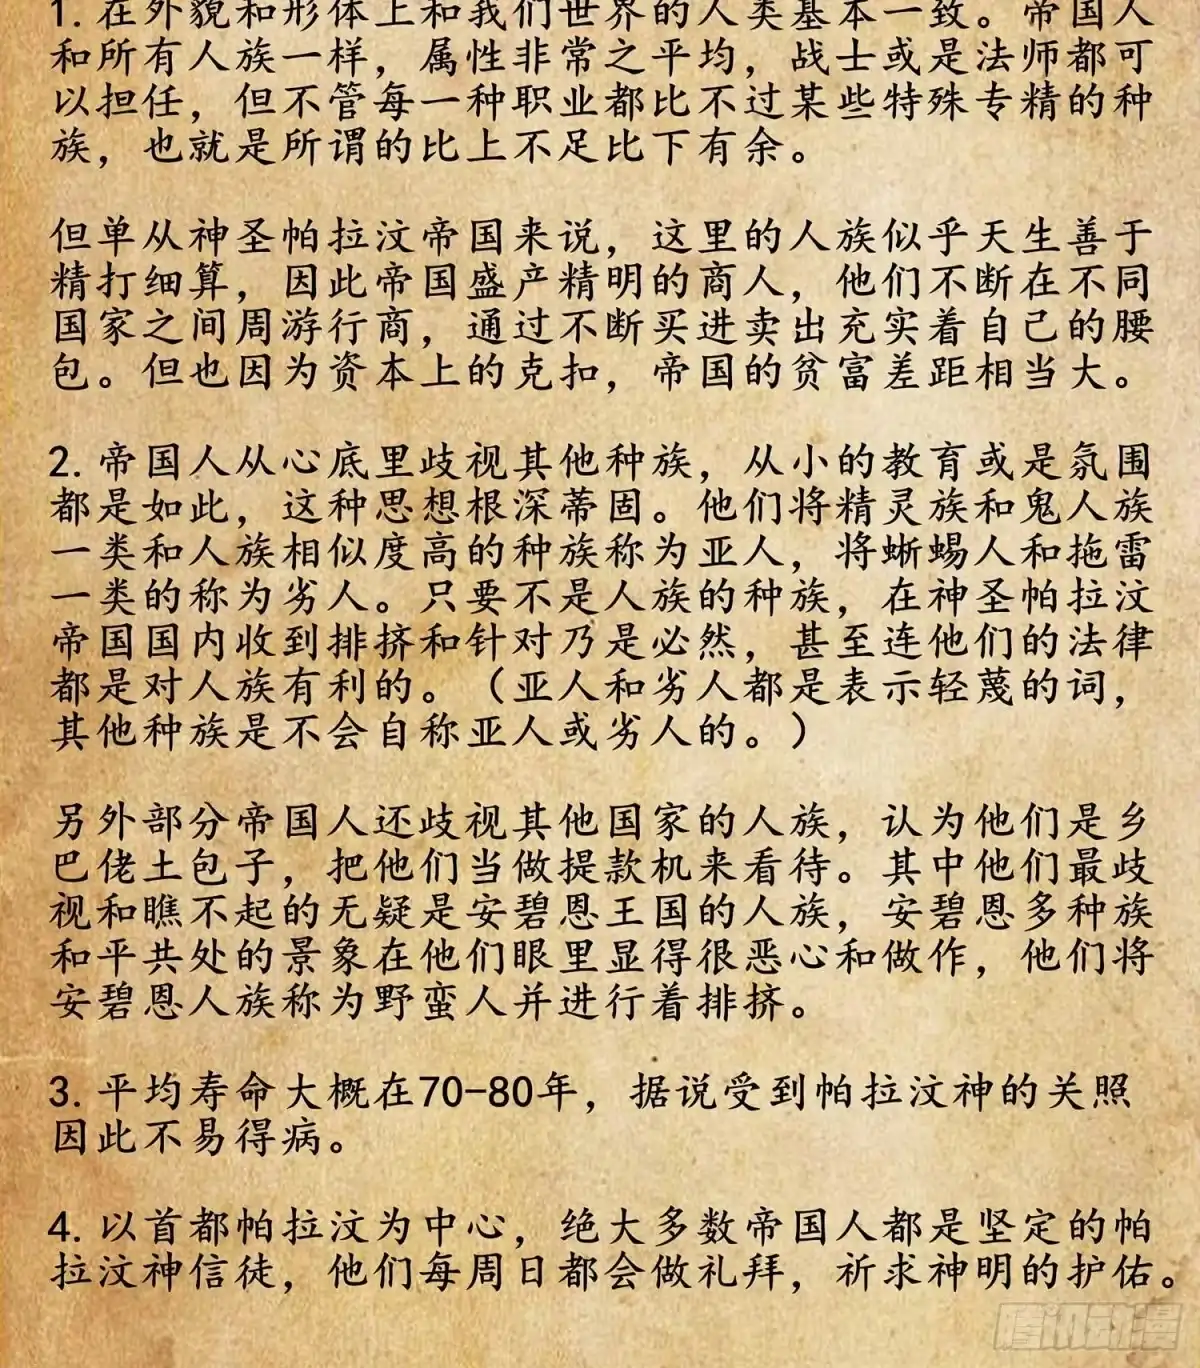 1. 在外貌和形体上和我们世界的人类基本一致。帝国人
和所有人族一样，属性非常之平均，战士或是法师都可
以担任，但不管每一种职业都比不过某些特殊专精的种
族，也就是所谓的比上不足比下有余。
但单从神圣帕拉汶帝国来说，这里的人族似乎天生善于
精打细算，因此帝国盛产精明的商人，他们不断在不同
国家之间周游行商，通过不断买进卖出充实着自己的腰
包。但也因为资本上的克扣，帝国的贫富差距相当大。
2. 帝国人从心底里歧视其他种族，从小的教育或是氛围
都是如此，这种思想根深蒂固。他们将精灵族和鬼人族
一类和人族相似度高的种族称为亚人，将蜥蜴人和拖雷
一类的称为劣人。只要不是人族的种族，在神圣帕拉汶
帝国国内收到排挤和针对乃是必然，甚至连他们的法律
都是对人族有利的。（亚人和劣人都是表示轻蔑的词，
其他种族是不会自称亚人或劣人的。）
另外部分帝国人还歧视其他国家的人族，认为他们是乡
巴佬土包子，把他们当做提款机来看待。其中他们最歧
视和瞧不起的无疑是安碧恩王国的人族，安碧恩多种族
和平共处的景象在他们眼里显得很恶心和做作，他们将
安碧恩人族称为野蛮人并进行着排挤。
3. 平均寿命大概在70-80年，据说受到帕拉汶神的关照
因此不易得病。
4. 以首都帕拉汶为中心，绝大多数帝国人都是坚定的帕
拉汶神信徒，他们每周日都会做礼拜，祈求神明的护佑。
腾讯动漫